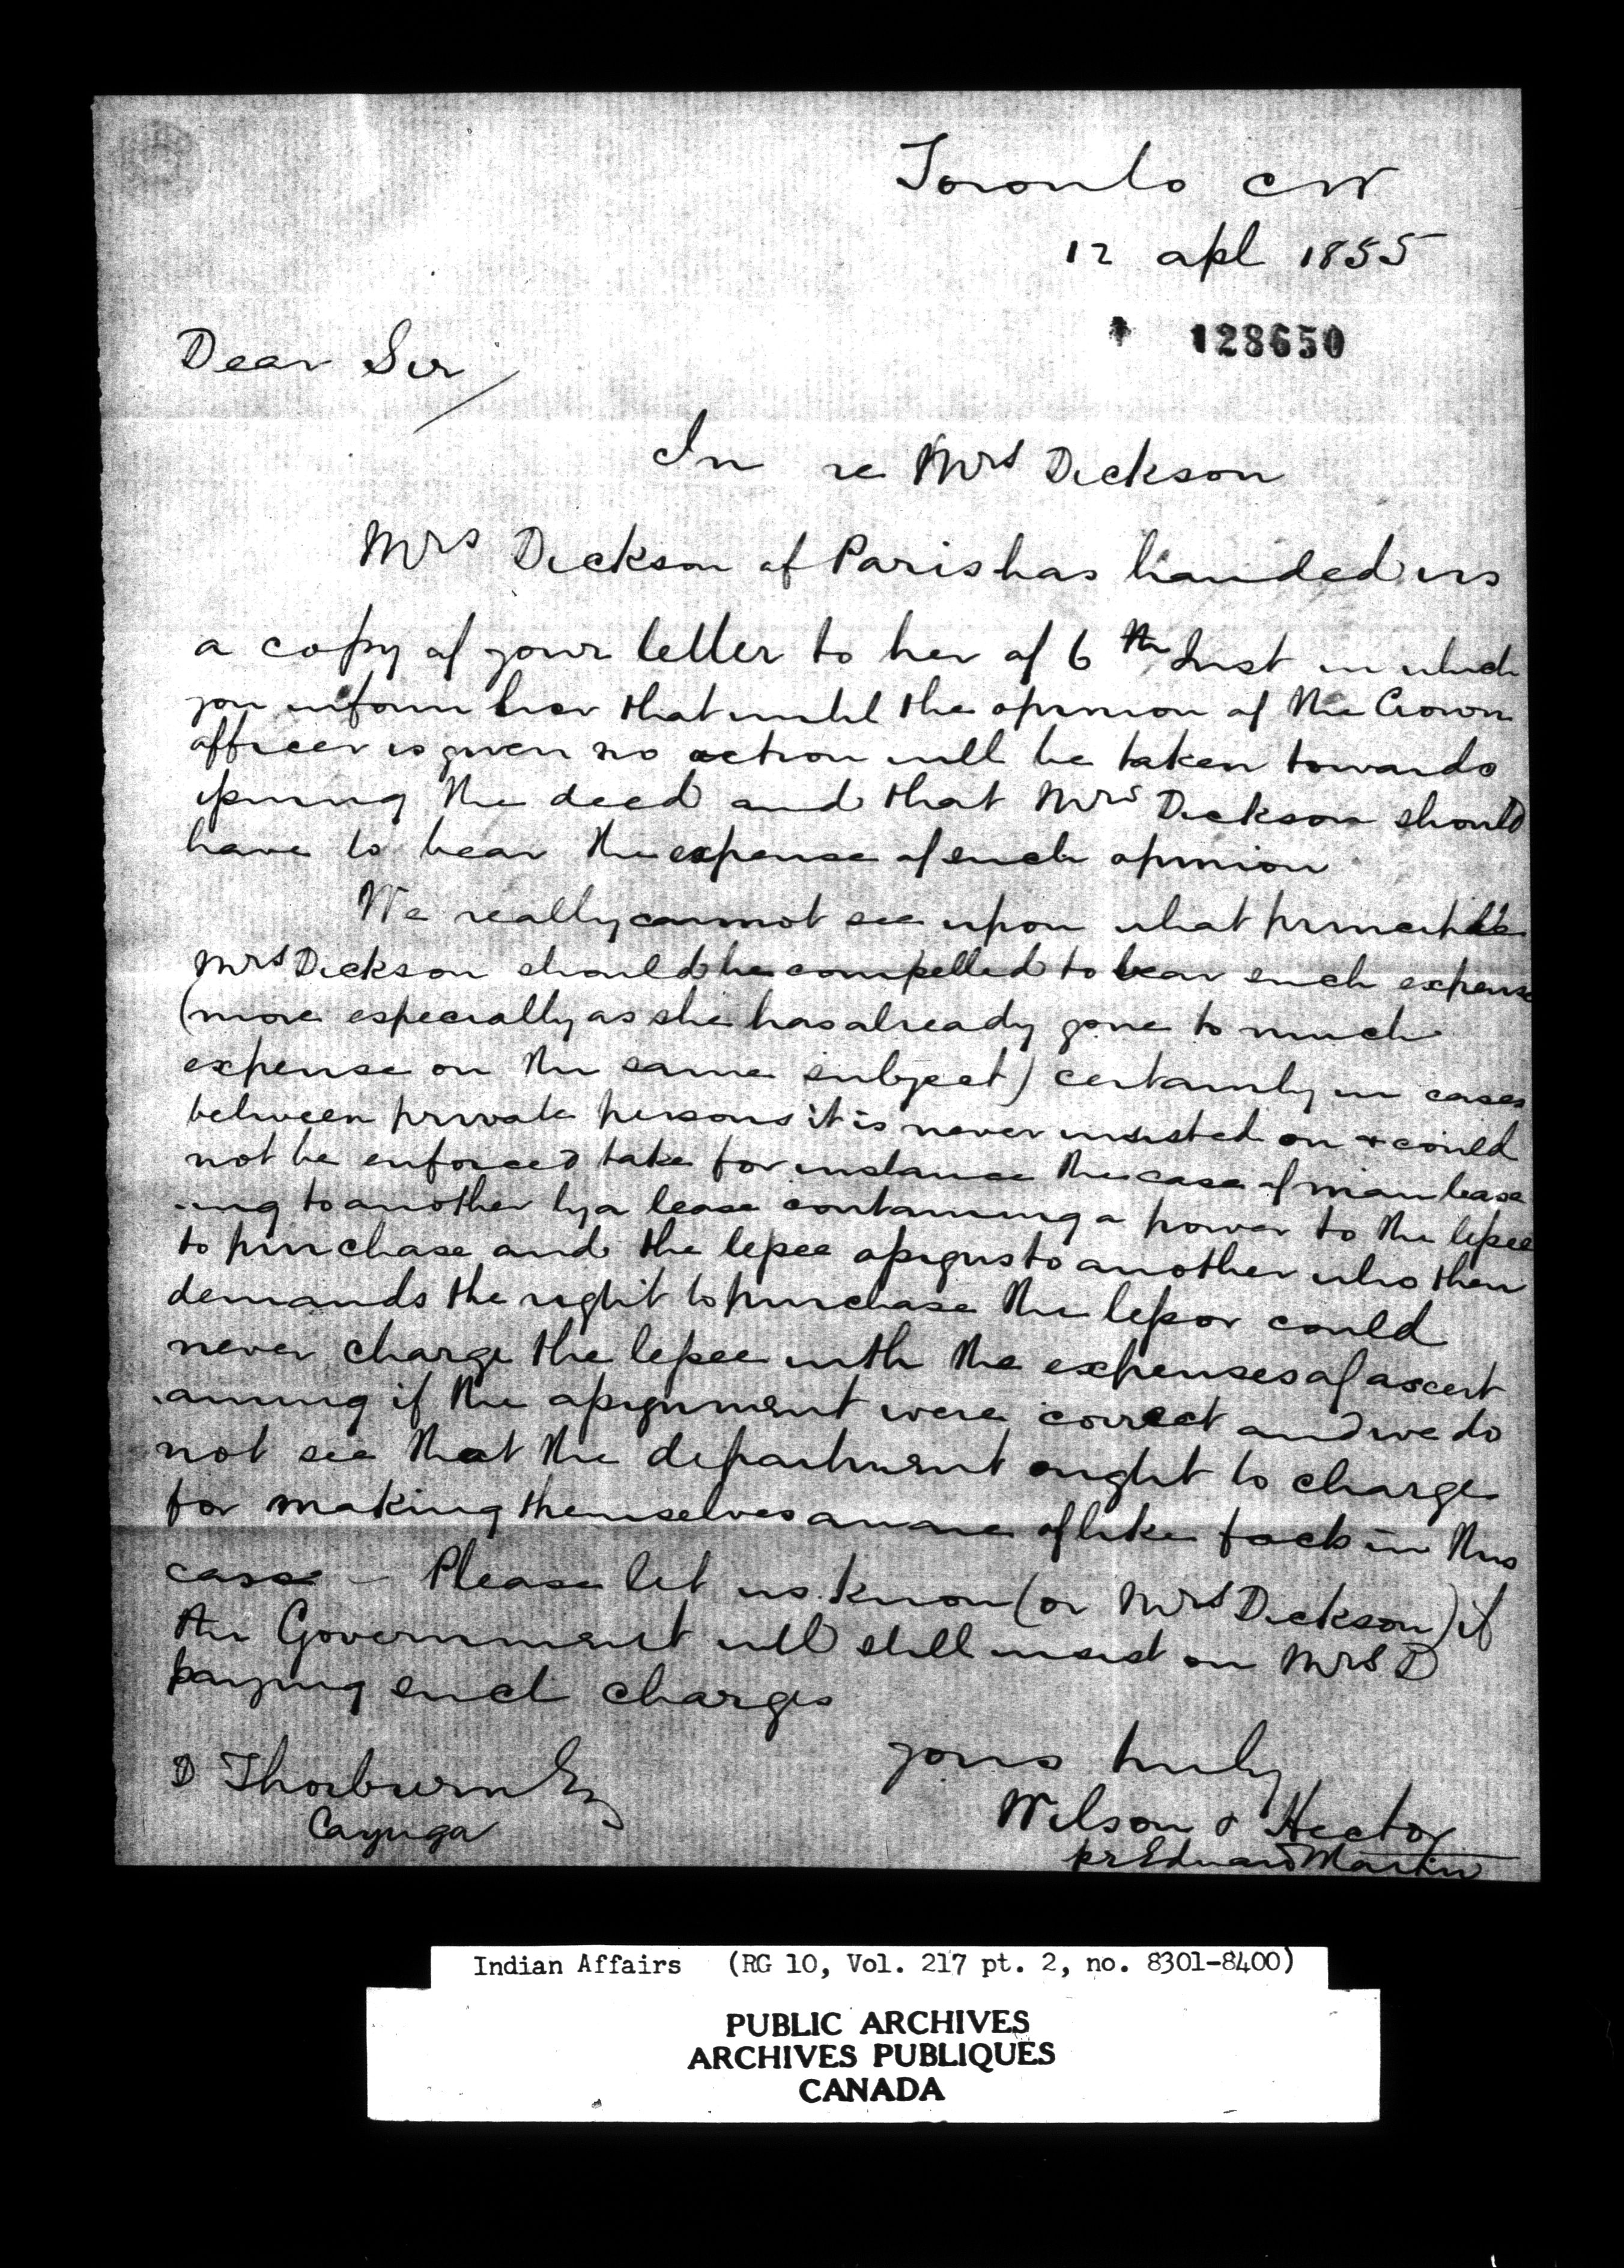 Toronto CW
12 apl 1855
128650
Dear Sir/
In re Mrs Dickson
Mrs Dickson of Paris has handed us
a copy of your letter to her of 6th Inst in which
you inform her that until the opinion of the Crown
officer is given no action will be taken towards
issuing the deed and that Mrs Dickson should
have to bear the expense of such opinion
We really cannot see upon what principle
Mrs Dickson should be compelled to bear such expense
(more especially as she has already gone to much
expense on the same subject) certainly in cases
between private persons it is never insisted on & could
not be enforced take for instance the case of man lease
-ing to another by a lease containing a power to the lessee
to purchase and the lessee assigns to another who then
demands the right to purchase the lessor could
never charge the lessee with the expenses of ascert
-aining if the assignment were correct and we do
not see that the department ought to charge
for making themselves aware of like facts in this
case - Please let us know (or Mrs Dickson) if
the Government will still insist on Mrs D
paying such charges
yours truly
D Thorburn Esq
Wilson & Hector
Cayuga
pr Edward Martin
Indian Affairs (RG 10, Vol. 217 pt. 2, no. 8301-8400)
PUBLIC ARCHIVES
ARCHIVES PUBLIQUES
CANADA